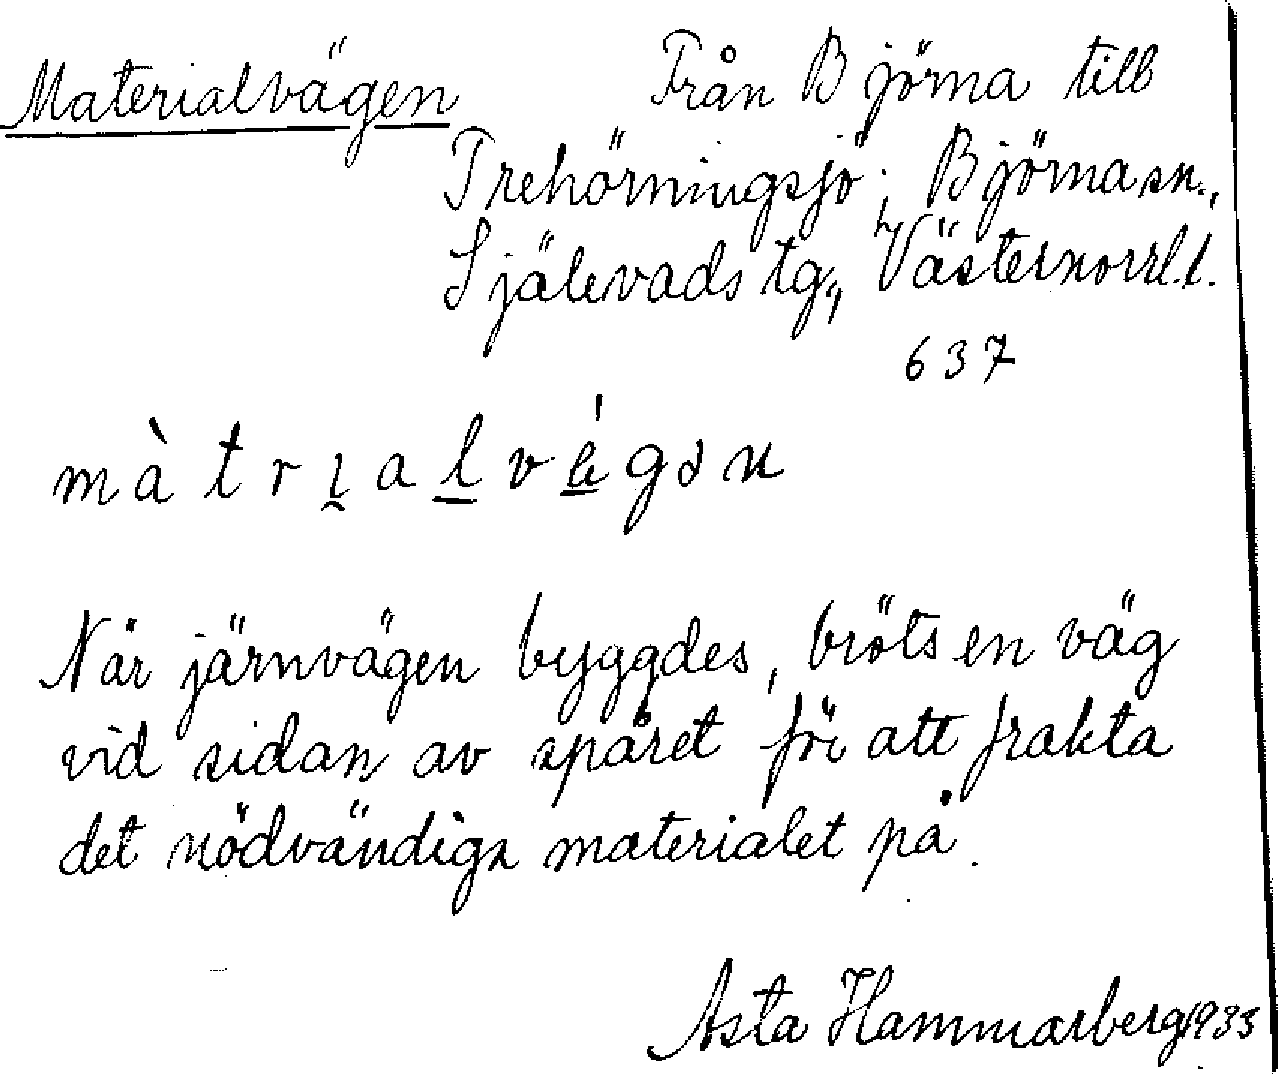 Materialvägen Från Björna till
Trehörningsjö, Björna sn.,
Själevads tg., Västernorrl. l.
637
màtrɩalvǽgən
När järnvägen byggdes, bröts en väg
vid sidan av spåret för att frakta
det nödvändiga materialet på.
Asta Hammarberg 1935